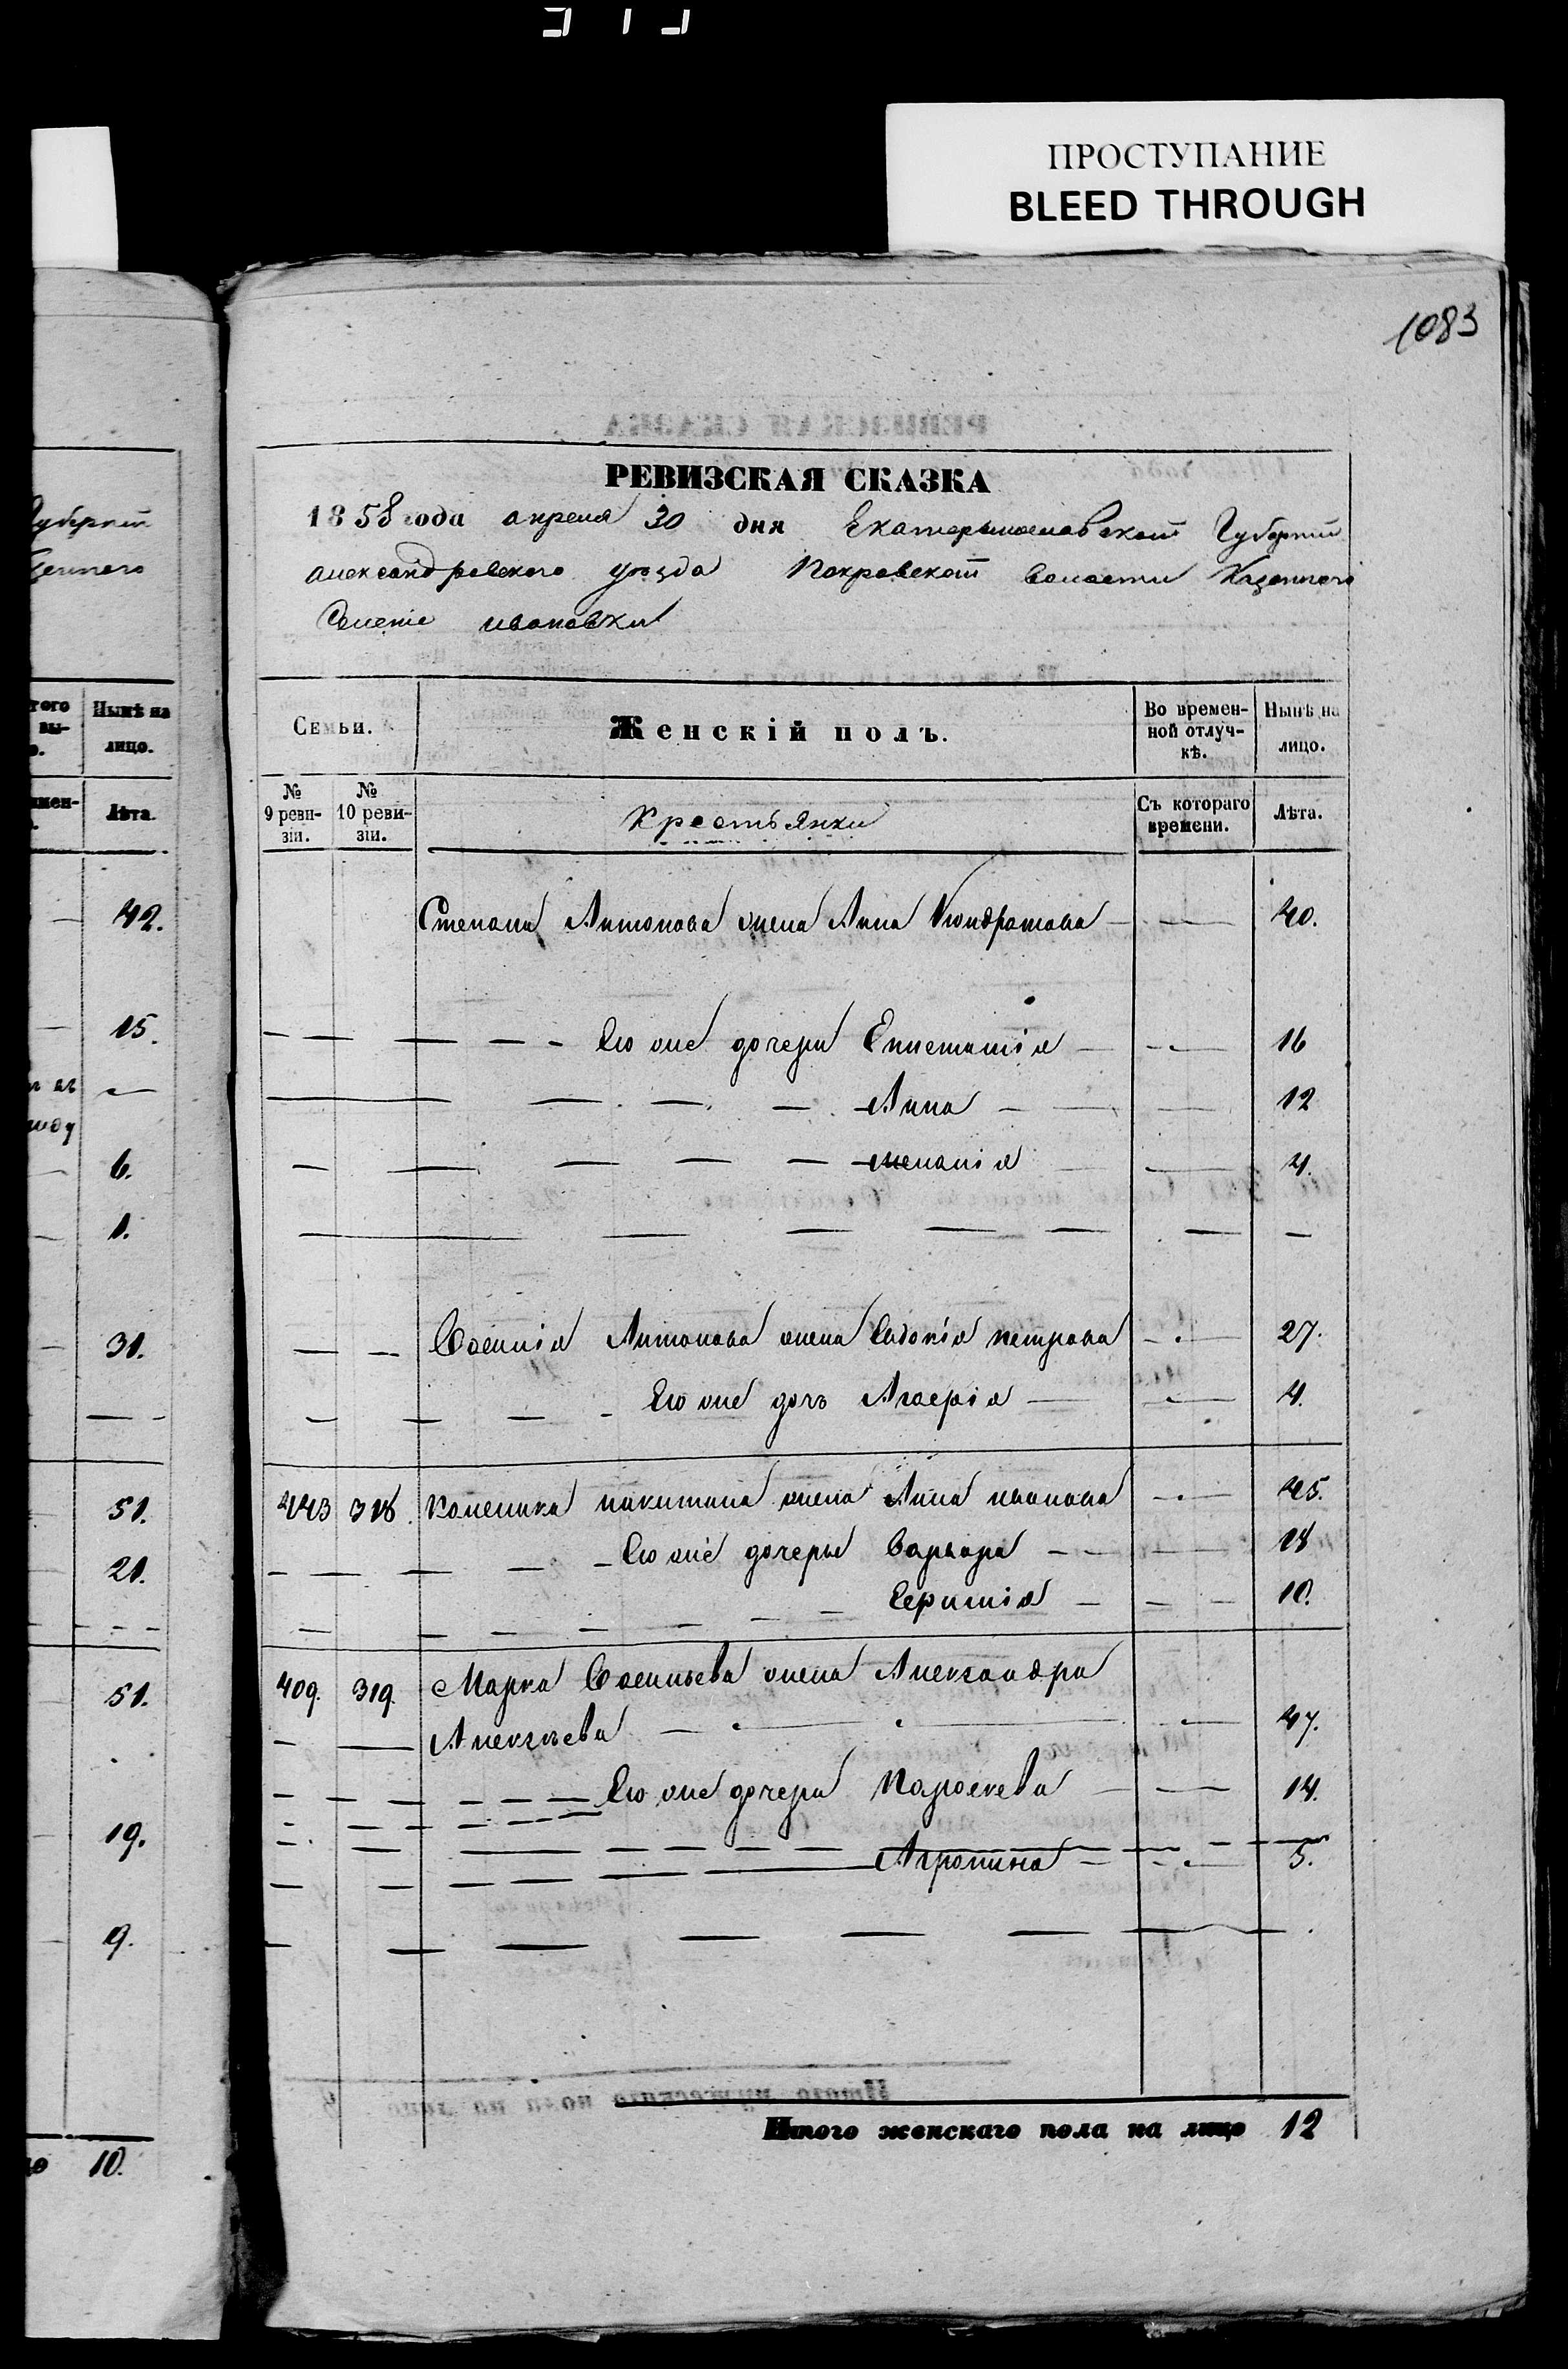 ПРОСТУПАНИЕ
BLEED THROUGH
1083
РЕВИЗСКАЯ СКАЗКА
1858 года апреля 30 дня Екатеринославской Губернии
александровского уѣзда Покровской волости Казенного
Селенiе ивановки
Семьи. Женскій полъ. Во времен-ной отлуч-кѣ. Нынѣ на лицо.
№ 9 реви-зіи. № 10 реви-зіи. Крестьянки Съ котораго времени. Лѣта.
Степана Антонова жена Анна Кондратова 40.
Его же дочери 16
Анна 12
4.
Антонова жена Евдокія петрова 27.
Его же дочь 4.
443 318. никитина жена Анна иванова 45.
Его же дочеры Варвара 18
10.
409. 319. Марка жена Александра
Алексѣева 47.
Его же дочери Параскева 14.
Агропина 5.
Итого женскаго пола на лицо 12
губерніи
Казенного
Нынѣ на лицо.
Лѣта.
42.
15.
6.
1.
31.
51.
21.
51.
19.
9.
10.